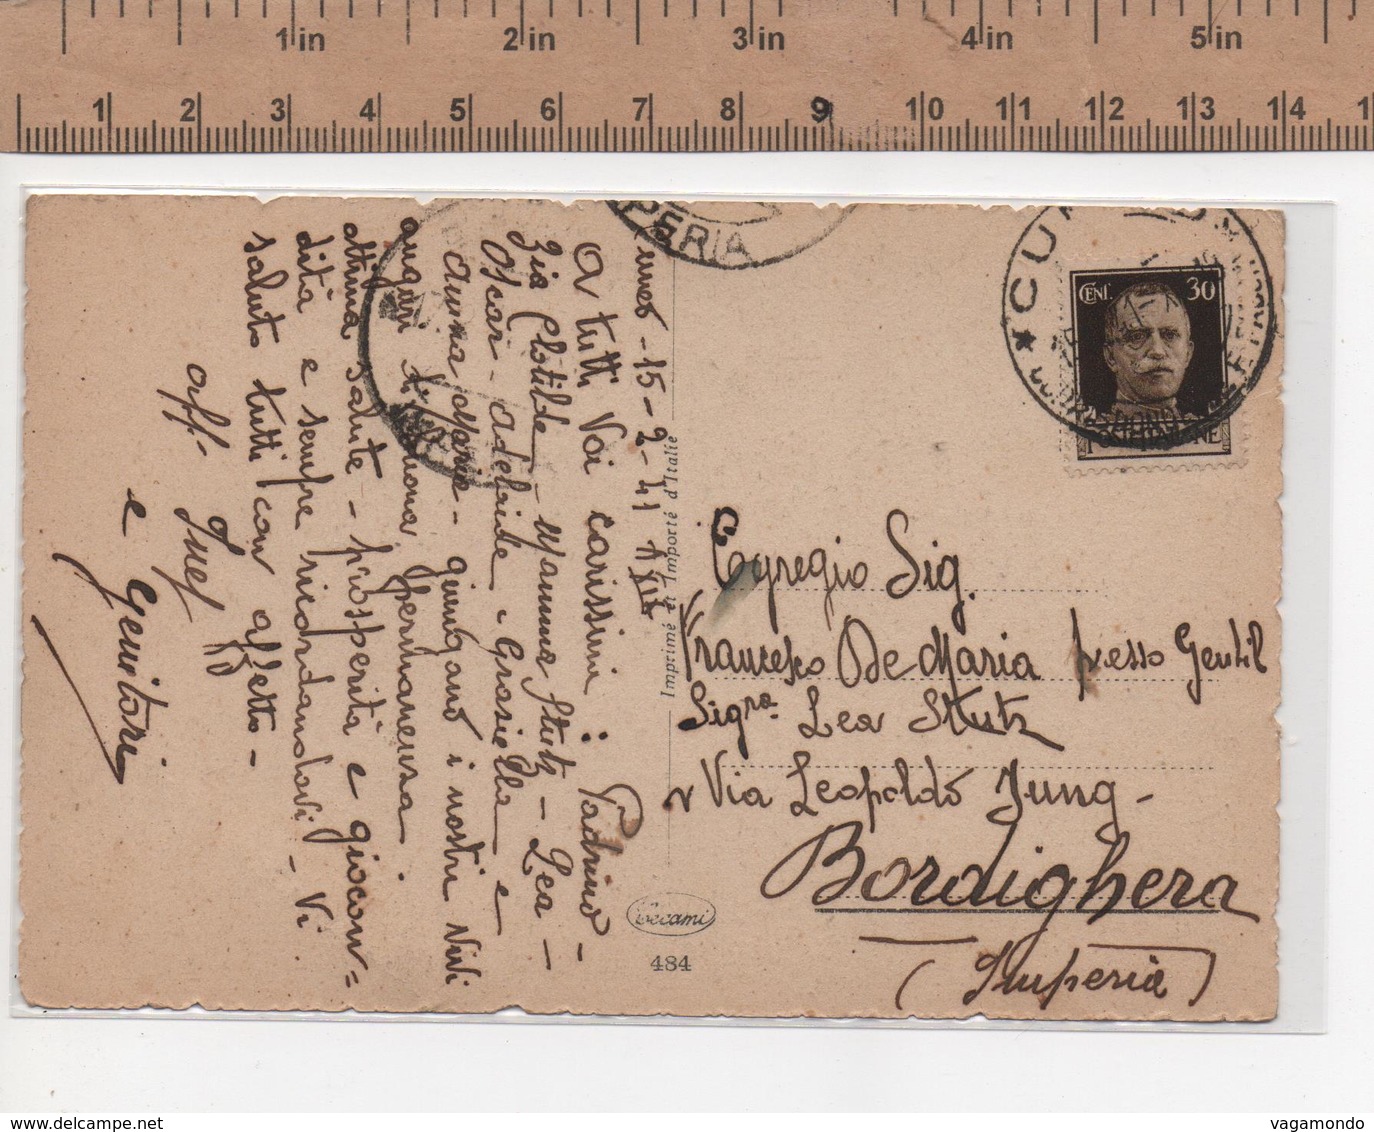 1 in 2 in 3 in 4 in 5 in
1 2 3 4 5 6 7 8 9 10 11 12 13 14 1
PERIA
CU
CENT. 30
POSTE ITALIANE
uneo - 15-2-41 XIX
A tutti Voi carissimi: Padrino -
Zia Clotilde - Mamma Stutz - Lea -
Oscar - Adelaide - Grasiella e
Anna Maria - giungano i nostri vivi
auguri di buona permanenza.
Ottima salute - prosperità e giocon=
dità e sempre ricordandovi - Vi
saluto tutti con affetto -
aff.
e Genitori
Imprimé en Italie Importé d'Italie
Cecami
484
Egregio Sig.
Francesco De Maria presso Gentil
Sigra Lea Stutz
Via Leopoldo Jung -
Bordighera
(Imperia)
vagamondo delcampe.net